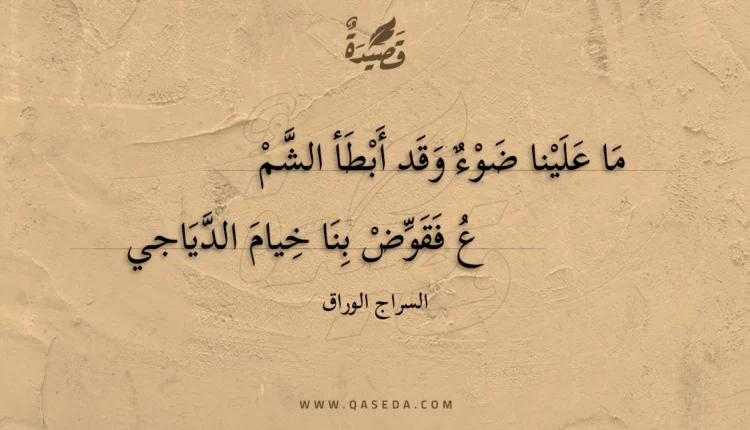 قَصِيْدَةٌ
مَا عَلَيْنا ضَوْءٌ وَقَد أَبْطَأ الشَّمْ
عُ فَقَوِّضْ بِنَا خِيامَ الدَّيَاجي
السراج الوراق
WWW.QASEDA.COM